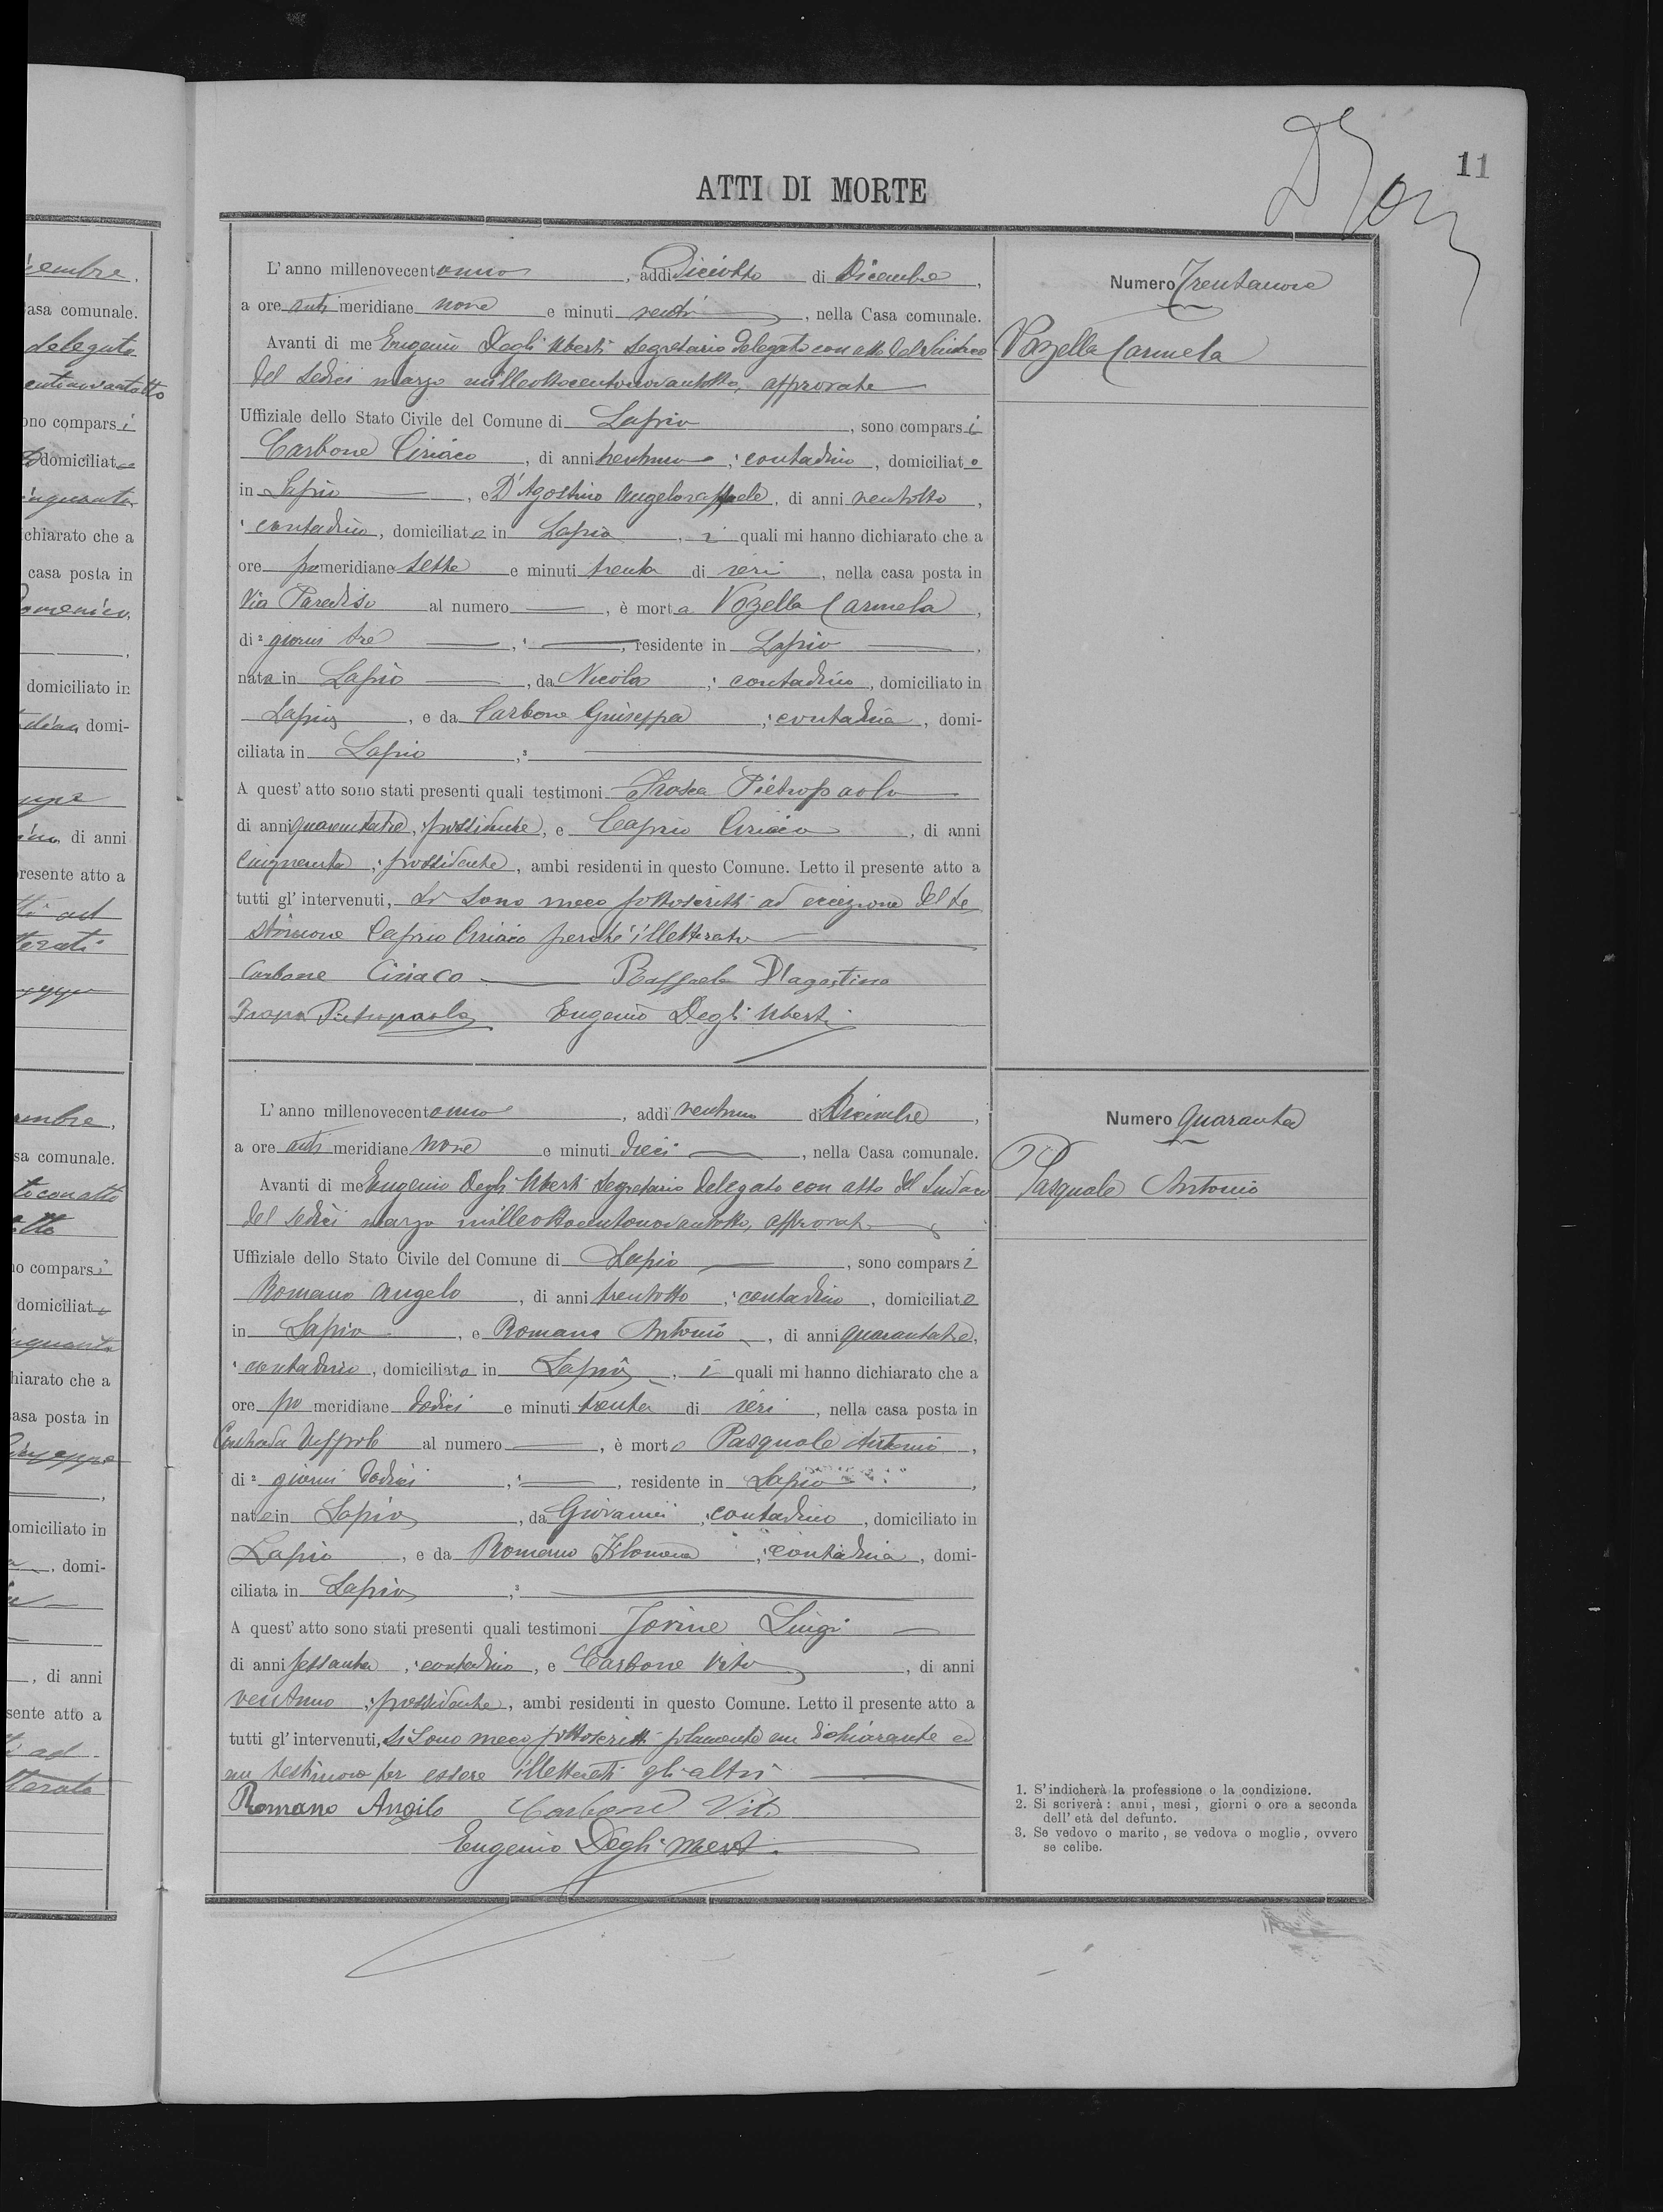 11
ATTI DI MORTE
L'anno millenovecentouno, addì Diciotto di Dicembre,
a ore anti meridiane nove e minuti venti, nella Casa comunale.
Avanti di me Eugenio Degli Uberti Segretario delegato con atto del Sindaco
del sedici marzo milleottocentonovantotto, approvato
Uffiziale dello Stato Civile del Comune di Lapio, sono comparsi
Carbone Ciriaco, di anni trentuno, ¹ contadino, domiciliato
in Lapio, e D'Agostino Angeloraffaele, di anni ventotto,
¹ contadino, domiciliato in Lapio, i quali mi hanno dichiarato che a
ore pomeridiane sette e minuti trenta di ieri, nella casa posta in
Via Paradiso al numero —, è morta Vozella Carmela,
di ² giorni tre —, ¹ —, residente in Lapio,
nata in Lapio, da Nicola, ¹ contadino, domiciliato in
Lapio, e da Carbone Giuseppa, ¹ contadina, domi-
ciliata in Lapio, ³ —
A quest'atto sono stati presenti quali testimoni Trosa Pietropaolo
di anni quarantatre, ¹ possidente, e Caprio Ciriaco, di anni
cinquanta, ¹ possidente, ambi residenti in questo Comune. Letto il presente atto a
tutti gl'intervenuti, si sono meco sottoscritti ad eccezione del te
stimone Caprio Ciriaco perché illetterato
Carbone Ciriaco Raffaele D'agostino
Pietropaolo Eugenio Degli Uberti
Numero Trentanove
Vozella Carmela
L'anno millenovecentouno, addì ventuno di Dicembre,
a ore anti meridiane nove e minuti dieci, nella Casa comunale.
Avanti di me Eugenio Degli Uberti Segretario delegato con atto del Sindaco
del sedici marzo milleottocentonovantotto, approvato
Uffiziale dello Stato Civile del Comune di Lapio, sono comparsi
Romano Angelo, di anni trentotto, ¹ contadino, domiciliato
in Lapio, e Romano Antonio, di anni quarantatre,
¹ contadino, domiciliato in Lapio, i quali mi hanno dichiarato che a
ore po meridiane dodici e minuti trenta di ieri, nella casa posta in
Contrada al numero —, è morto Pasquale Antonio,
di ² giorni dodici, ¹ —, residente in Lapio,
nato in Lapio, da Giovanni, contadino, domiciliato in
Lapio, e da Romano Filomena, ¹ contadina, domi-
ciliata in Lapio, ³ —
A quest'atto sono stati presenti quali testimoni Jovine Luigi
di anni sessanta, ¹ contadino, e Carbone Vito, di anni
ventuno, ¹ possidente, ambi residenti in questo Comune. Letto il presente atto a
tutti gl'intervenuti, si sono meco sottoscritti solamente un dichiarante ed
un testimone per essere illetterati gli altri
Romano Angilo Carbone Vito
Eugenio Degli Uberti
Numero quaranta
Pasquale Antonio
1. S'indicherà la professione o la condizione.
2. Si scriverà: anni, mesi, giorni o ore a seconda
dell'età del defunto.
3. Se vedovo o marito, se vedova o moglie, ovvero
se celibe.